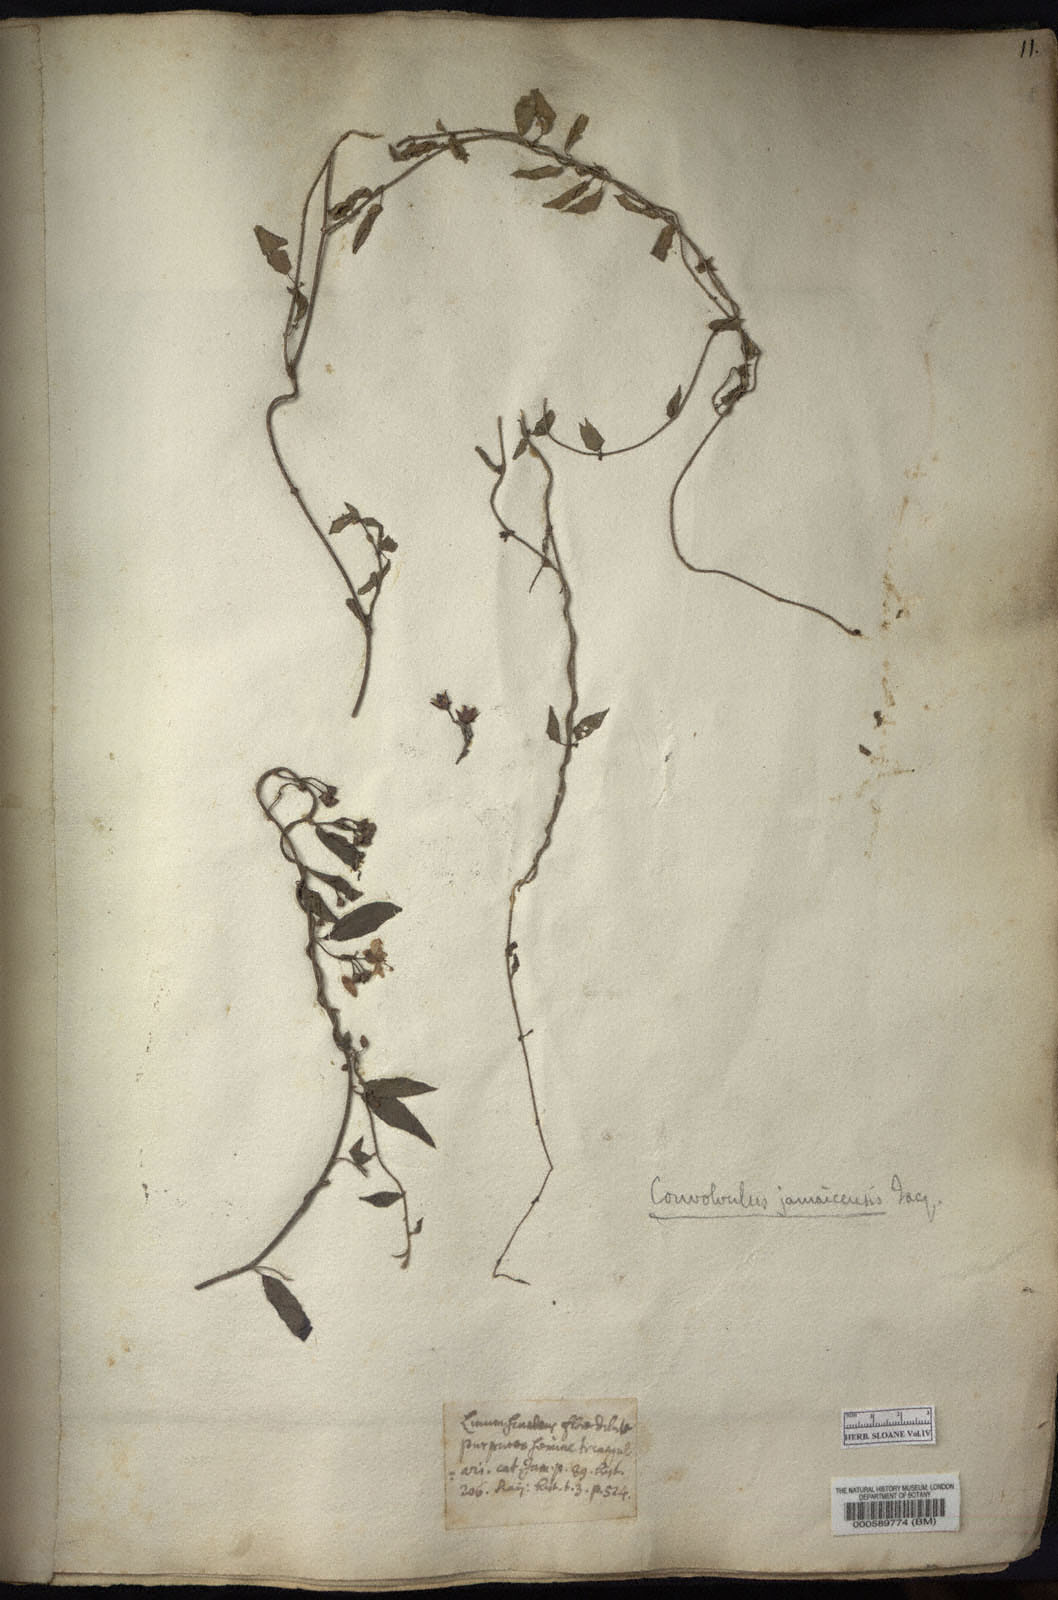 11.
Convolvulus jamaicensis Jacq.
Linum scandens flore dilute
purpureo semine triangul
=ari. cat. Jam. p. 89. hist.
206. Raij: hist. t. 3. p. 524.
HERB. SLOANE Vol.IV
THE NATURAL HISTORY MUSEUM, LONDON
DEPARTMENT OF BOTANY
000589774 (BM)